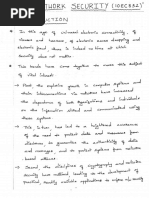 NETWORK SECURITY (10EC832)
INTRODUCTION
* In this age of universal electronic connectivity, of
viruses and hackers, of electronic eaves dropping and
electronic fraud, there is indeed no time at which
security does not matter.
* Two trends have come together to make this subject
of vital interest
* First, the explosive growth in computer systems and
their interconnections via networks have increased
the dependence of both organizations and individuals
on the information stored and communicated using
these systems.
* This in turn, has led to a heightened awareness
of the need to protect data and resources from
disclosure, to guarantee the authenticity of data
and messages, and to protect systems from network-
based attacks.
* Second, the disciplines of cryptography and network
security have matured, leading to the development of
practical, readily available applications to enforce n/w security